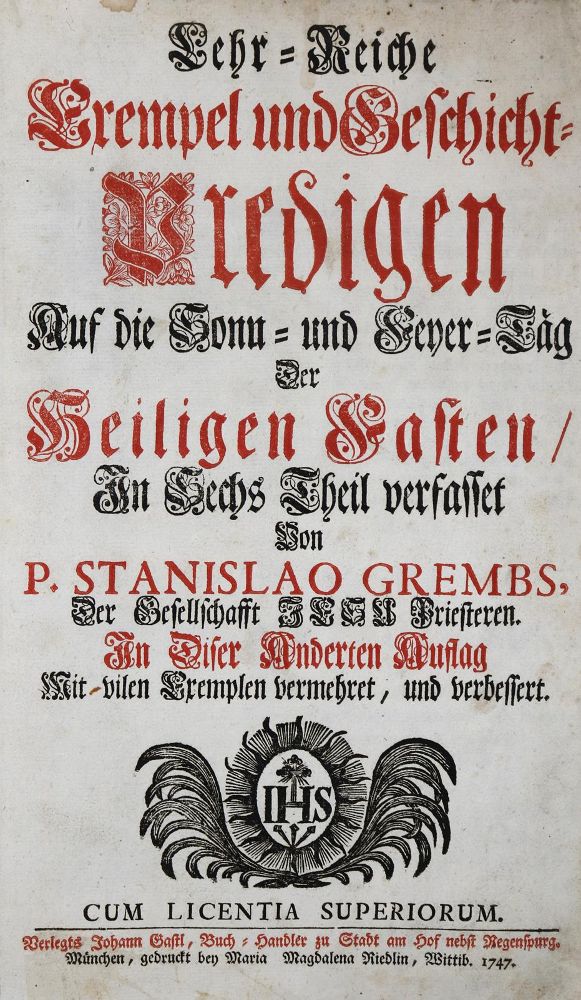 Lehr-Reiche
Exempel und Geschicht-
Predigen
Auf die Sonn- und Feyer-Täg
Der
Heiligen Fasten /
In Sechs Theil verfasset
Von
P. STANISLAO GREMBS,
Der Gesellschafft JESU Priesteren.
In Diser Anderten Auflag
Mit vilen Exemplen vermehret, und verbessert.
IHS
CUM LICENTIA SUPERIORUM.
Verlegts Johann Gastl, Buch-Handler zu Stadt am Hof nebst Regenspurg.
München, gedruckt bey Maria Magdalena Riedlin, Wittib. 1747.